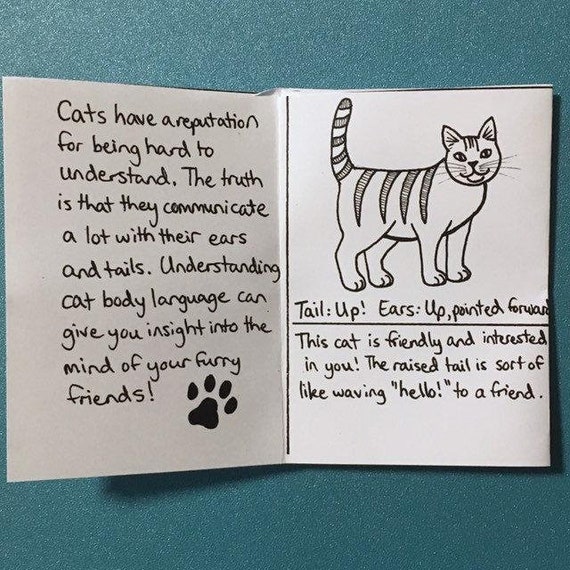 Cats have a reputation
for being hard to
understand. The truth
is that they communicate
a lot with their ears
and tails. Understanding
cat body language can
give you insight into the
mind of your furry
friends!
Tail: Up! Ears: Up, pointed forward
This cat is friendly and interested
in you! The raised tail is sort of
like waving "hello!" to a friend.